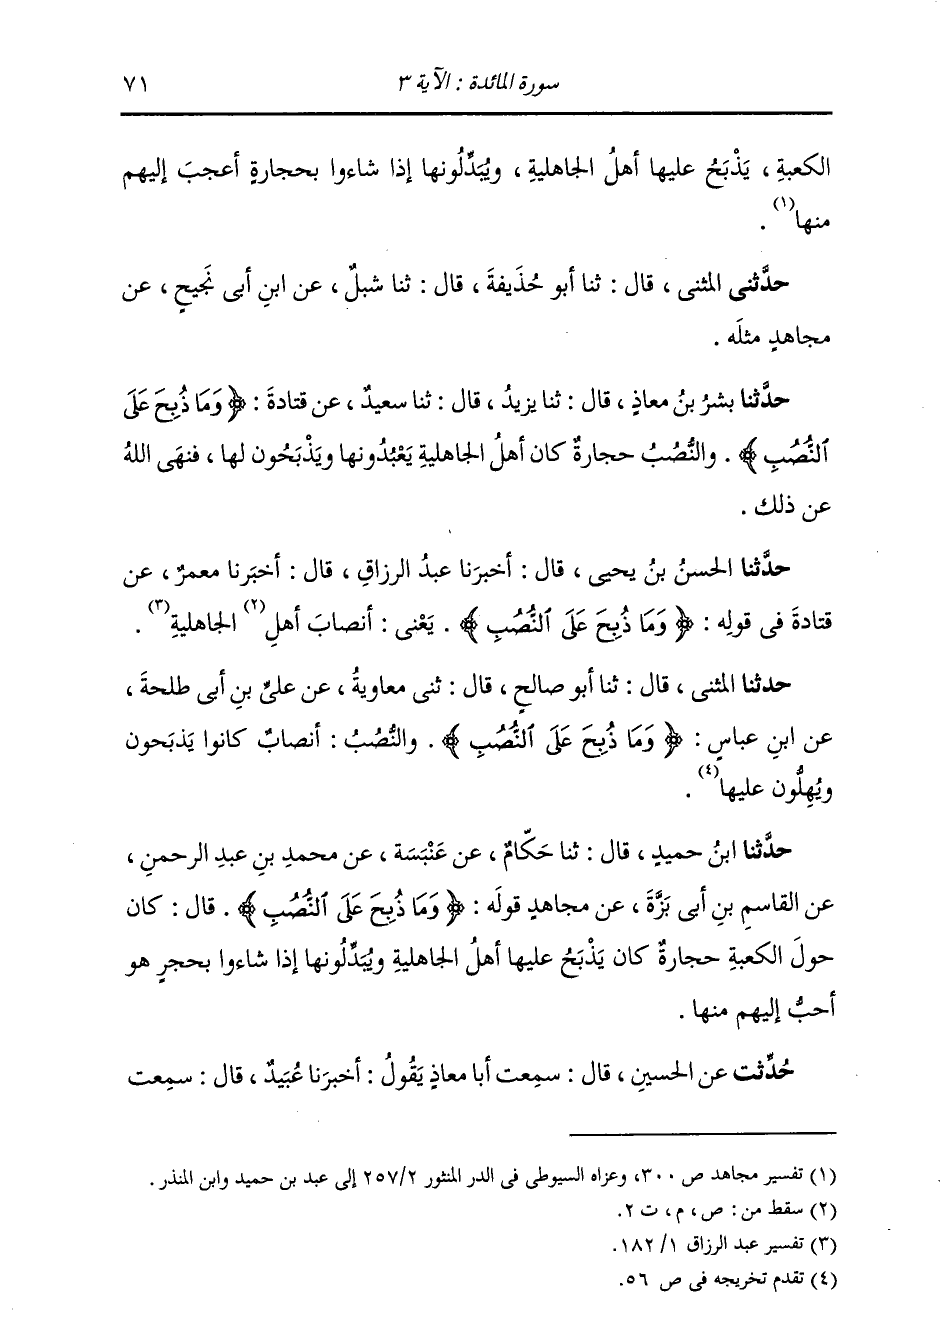 سورة المائدة : الآية ٣
٧١
الكعبةِ ، يَذْبَحُ عليها أهلُ الجاهليةِ ، ويُبَدِّلُونها إذا شاءوا بحجارةٍ أعجبَ إليهم
منها(١) .
حدَّثنى المثنى ، قال : ثنا أبو حُذَيفةَ ، قال : ثنا شبلٌ ، عن ابنِ أبى نَجيحٍ ، عن
مجاهدٍ مثلَه .
حدَّثنا بشرُ بنُ معاذٍ ، قال : ثنا يزيدُ ، قال : ثنا سعيدٌ ، عن قتادةَ : ﴿ وَمَا ذُبِحَ عَلَى
ٱلنُّصُبِ ﴾ . والنُّصُبُ حجارةٌ كان أهلُ الجاهليةِ يَعْبُدُونها ويَذْبَحُون لها ، فنهَى اللهُ
عن ذلك .
حدَّثنا الحسنُ بنُ يحيى ، قال : أخبرَنا عبدُ الرزاقِ ، قال : أخبَرنا معمرٌ ، عن
قتادةَ فى قولِه : ﴿ وَمَا ذُبِحَ عَلَى ٱلنُّصُبِ ﴾ . يَعْنى : أنصابَ أهلِ(٢) الجاهليةِ(٣) .
حدثنا المثنى ، قال : ثنا أبو صالحٍ ، قال : ثنى معاويةُ ، عن علىِّ بنِ أبى طلحةَ ،
عن ابنِ عباسٍ : ﴿ وَمَا ذُبِحَ عَلَى ٱلنُّصُبِ ﴾ . والنُّصُبُ : أنصابٌ كانوا يَذبَحون
ويُهِلُّون عليها(٤) .
حدَّثنا ابنُ حميدٍ ، قال : ثنا حَكَّامٌ ، عن عَنْبَسَة ، عن محمدِ بنِ عبدِ الرحمنِ ،
عن القاسمِ بنِ أبى بَزَّةَ ، عن مجاهدٍ قولَه : ﴿ وَمَا ذُبِحَ عَلَى ٱلنُّصُبِ ﴾ . قال : كان
حولَ الكعبةِ حجارةٌ كان يَذْبَحُ عليها أهلُ الجاهليةِ ويُبَدِّلُونها إذا شاءوا بحجرٍ هو
أحبُّ إليهم منها .
حُدِّثت عن الحسينِ ، قال : سمِعت أبا معاذٍ يَقُولُ : أخبرَنا عُبَيدٌ ، قال : سمِعت
(١) تفسير مجاهد ص ٣٠٠، وعزاه السيوطى فى الدر المنثور ٢٥٧/٢ إلى عبد بن حميد وابن المنذر .
(٢) سقط من : ص ، م ، ت ٢.
(٣) تفسير عبد الرزاق ١/ ١٨٢.
(٤) تقدم تخريجه فى ص ٥٦.